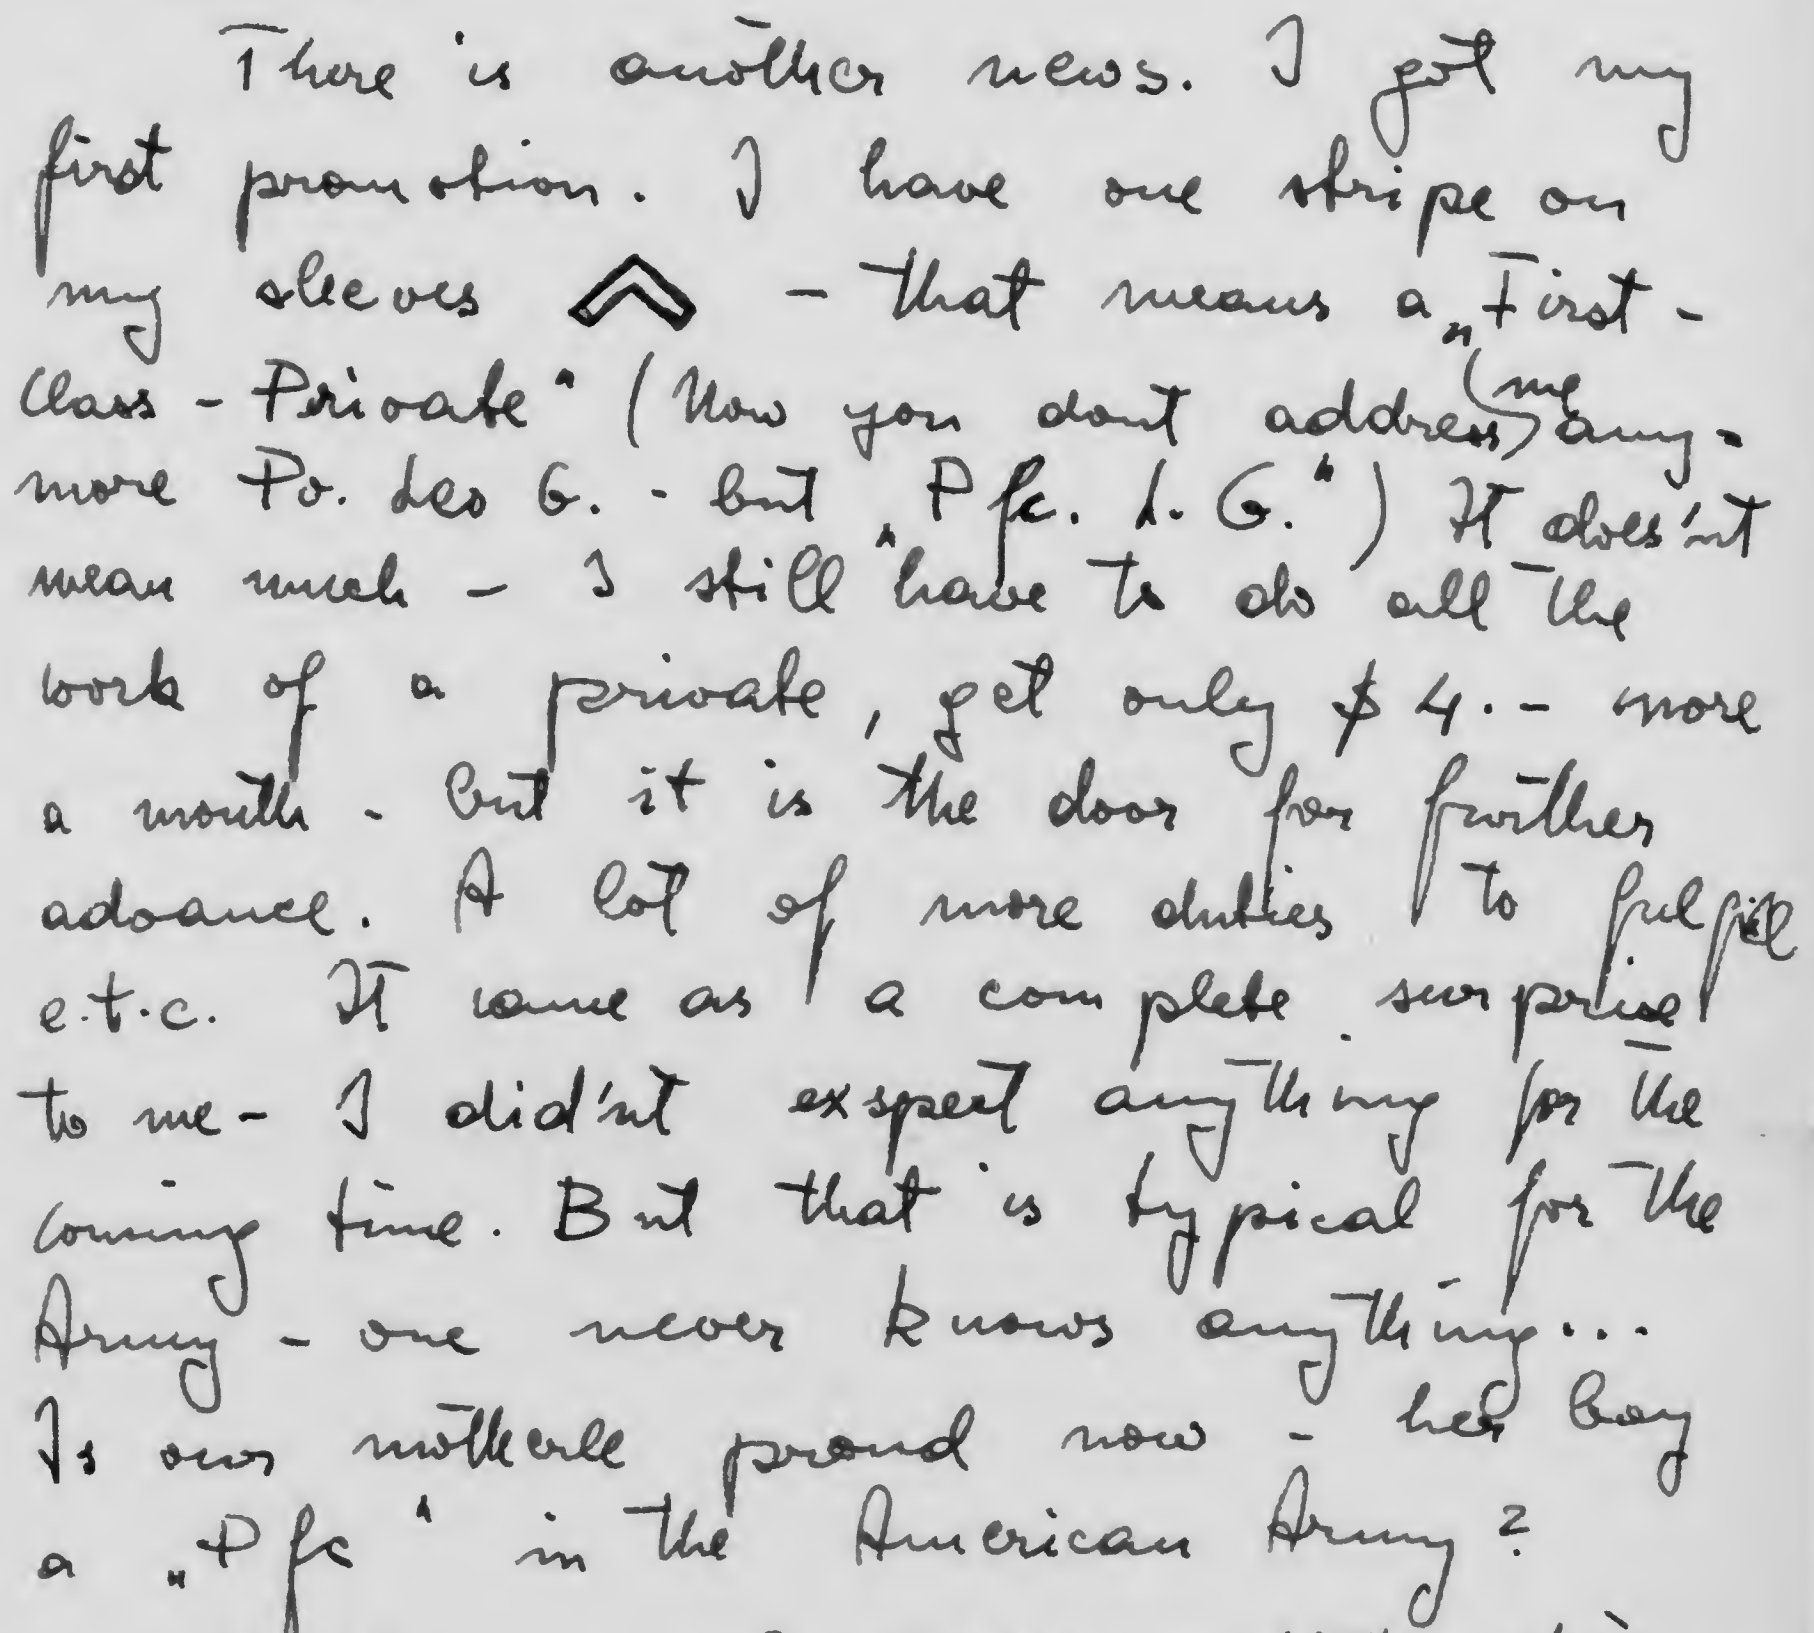 There is another news. I got my
first promotion. I have one stripe on
my sleeves - that means a „First -
Class - Private“ (Now you dont address (me) any-
more Pv. Leo G. - but „Pfc. L. G.“) It does'nt
mean much - I still have to do all the
work of a private, get only $ 4.- more
a month - but it is the door for further
advance. A lot of more duties to fulfill
e.t.c. It came as a complete surprise
to me - I did'nt exspect anything for the
coming time. But that is typical for the
Army - one never knows anything...
Is our motherle proud now - her boy
a „Pfc“ in the American Army?